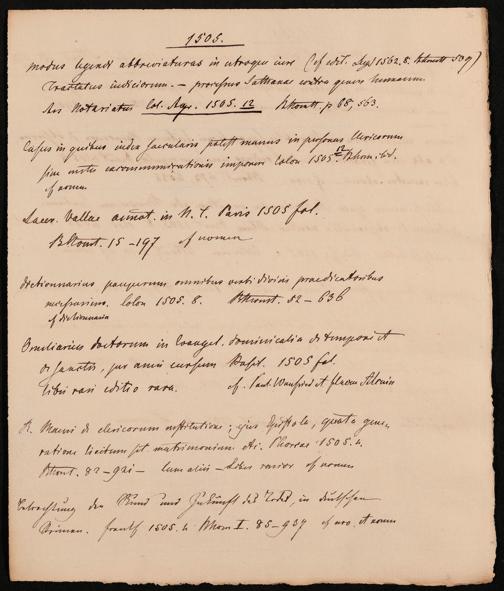 1505.
Modus legendi abbreviaturas in utroque iure (cf edit. 1562. 8.
Tractatus iudiciorum. – processus Sathanae contra genus humanum
Ars Notariatus Col. Agr. 1505. 12 p 68, 563.
Casus in quibus iudex saecularis potest manus in personas clericorum
sine metu excommunicationis imponere Colon 1505 12 ibid.
cf nomen
Laur. Vallae annot. in N. T. Paris 1505 fol.
15–197 cf nomen
Dictionarius pauperum omnibus verbi divini praedicatoribus
necessarius. Colon 1505. 8. 82–636
cf dictionaria
Omeliarius doctorum in Evangel. dominicalia de tempore et
de sanctis, per anni cursum Basil. 1505 fol.
libri rari editio rara. cf. Paul
R. Mauri de clericorum institutione; ejus Epistola, quota gene-
ratione licitum sit matrimonium etc. Phorcae 1505. 4.
82–921– cum aliis – Liber rarior cf nomen
Betrachtung der Stund und Zukunft des Todes, in deutschen
Reimen. Frankf 1505. 4 I. 85–937 et nomen